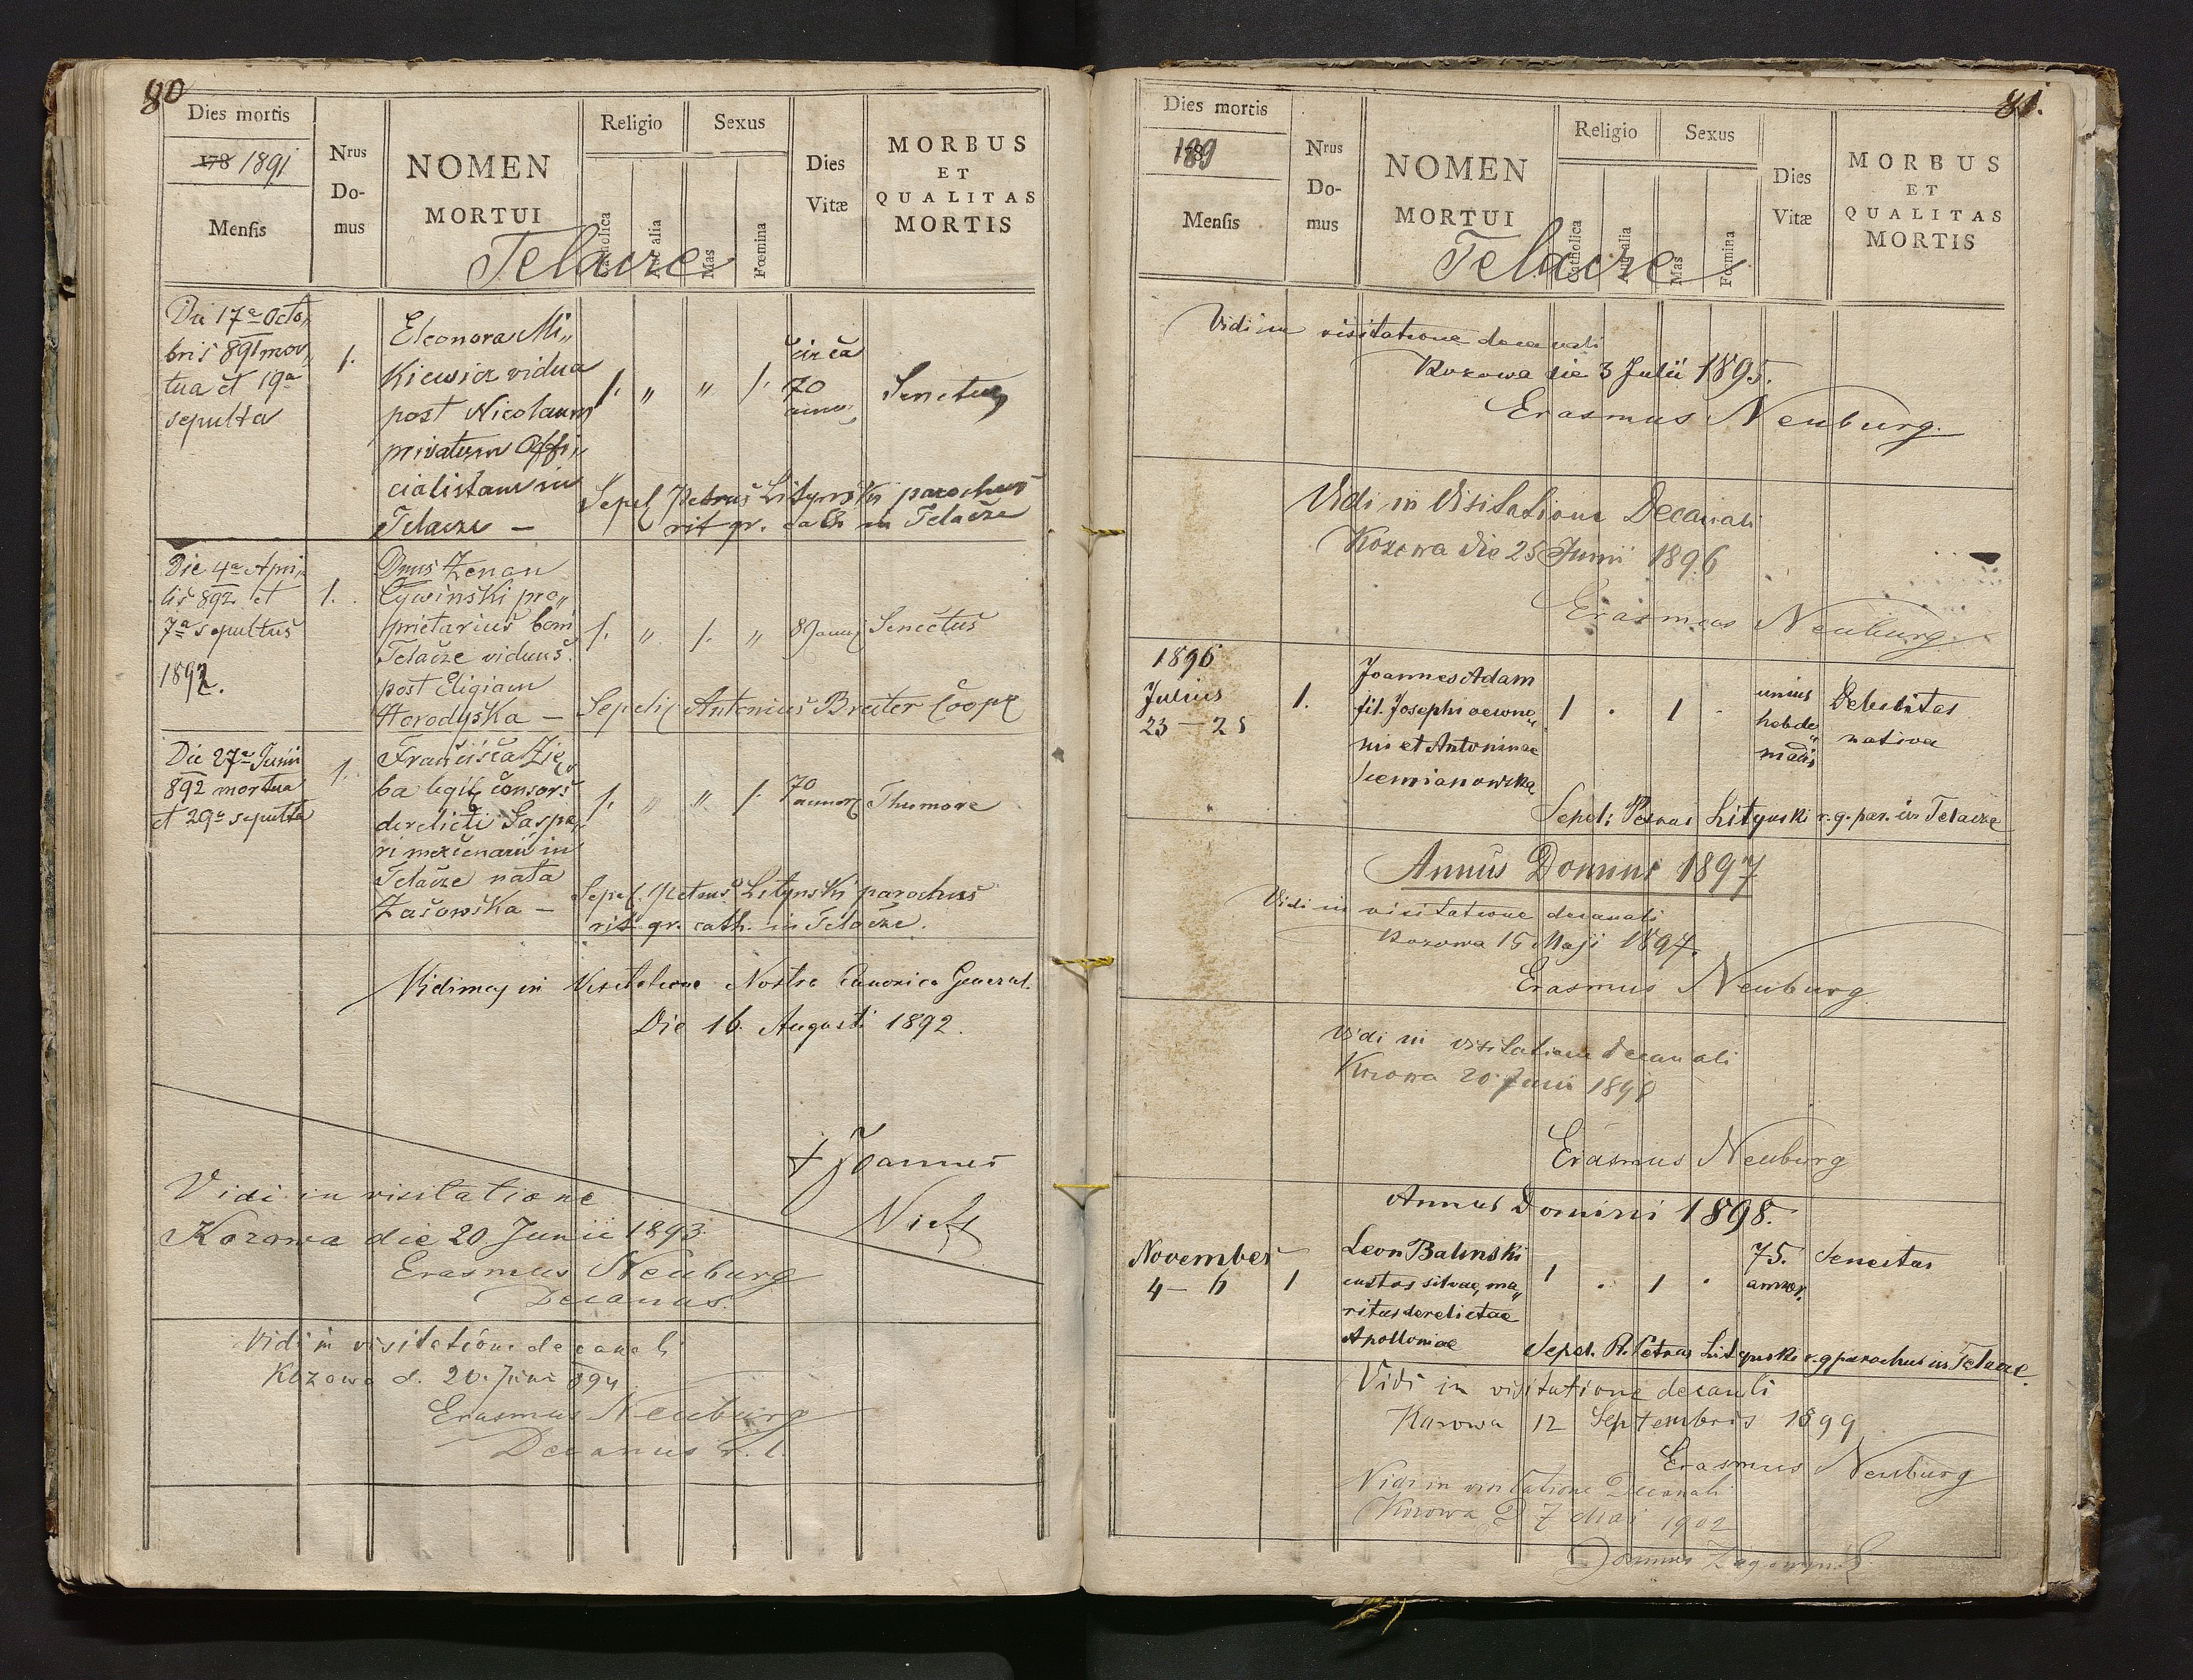 80
Dies mortis
178 1891
Mensis
Nrus
Do-
mus
NOMEN
MORTUI
Religio
Catholica
Aut alia
Sexus
Mas
Fœmina
Dies
Vitæ
MORBUS
ET
QUALITAS
MORTIS
Telacze
Die 17a Octo„
bris 891 mor„
tua et 19a
sepulta
1.
Eleonora Mi„
kiewicz vidua
post Nicolaum
privatum Offi„
cialistam in
Telacze —
1. „ „ 1.
circa
70
annor
Senectus
Sepel Petrus Litynski parochus
rit gr. cath in Telacze
Die 4a Apri„
lis 892 et
7a sepultus
1892.
1.
Dnus Zenon
Cywinski pro„
prietarius boni
Telacze viduus
post Eligiam
Horodyska —
1. „ 1. „
89 annor
Senectus
Sepeliv Antonius Breiter Coop
Die 27a Junii
892 mortua
et 29a sepulta
1.
Francisca Zię„
ba legit consors
derelicti Gaspa„
ri mercenarii in
Telacze nata
Zasowska —
1. „ „ 1.
70
annor
Thumore
Sepel. Petrus Litynski parochus
rit gr. cath. in Telacze.
Vidimus in Visitatione Nostra Canonica General.
Die 16. Augusti 1892.
+ Joannes
Vidi in visitatione
Kozowa die 20 Junii 1893.
Erasmus Neuburg
Decanus.
Vidi in visitatione decanali
Kozowa d. 20. Juni 894
Erasmus Neuburg
Decanus r. l.
81.
Dies mortis
189
Mensis
Nrus
Do-
mus
NOMEN
MORTUI
Religio
Catholica
Aut alia
Sexus
Mas
Fœmina
Dies
Vitæ
MORBUS
ET
QUALITAS
MORTIS
Telacze
Vidi in visitatione decanali
Kozowa die 3 Julii 1895.
Erasmus Neuburg.
Vidi in Visitatione Decanali
Kozowa die 25 Junii 1896
Erasmus Neuburg.
1896
Julius
23 — 25
1.
Joannes Adam
fil. Josephi oecono„
mi et Antoninae
Siemianowska
1 . 1 .
unius
hebdo„
madis
Debilitas
nativa
Sepel: Petrus Litynski r. g. par. in Telacze
Annus Domini 1897
Vidi in visitatione decanali
Kozowa 15 Maji 1897.
Erasmus Neuburg
Vidi in visitatione decanali
Kozowa 20 Juni 1898
Erasmus Neuburg
Annus Domini 1898.
November
4 – 6
1
Leon Balinski
custos silvae, ma„
ritus derelictae
Apolloniae
1 . 1 .
75.
annor.
Senectus
Sepel. R. Petrus Litynski r. g parochus in Telacze.
Vidi in visitatione decanali
Kozowa 12 Septembris 1899
Erasmus Neuburg
Vidi in visitatione Decanali
Kozowa D 7 Mai 1902
Joannes